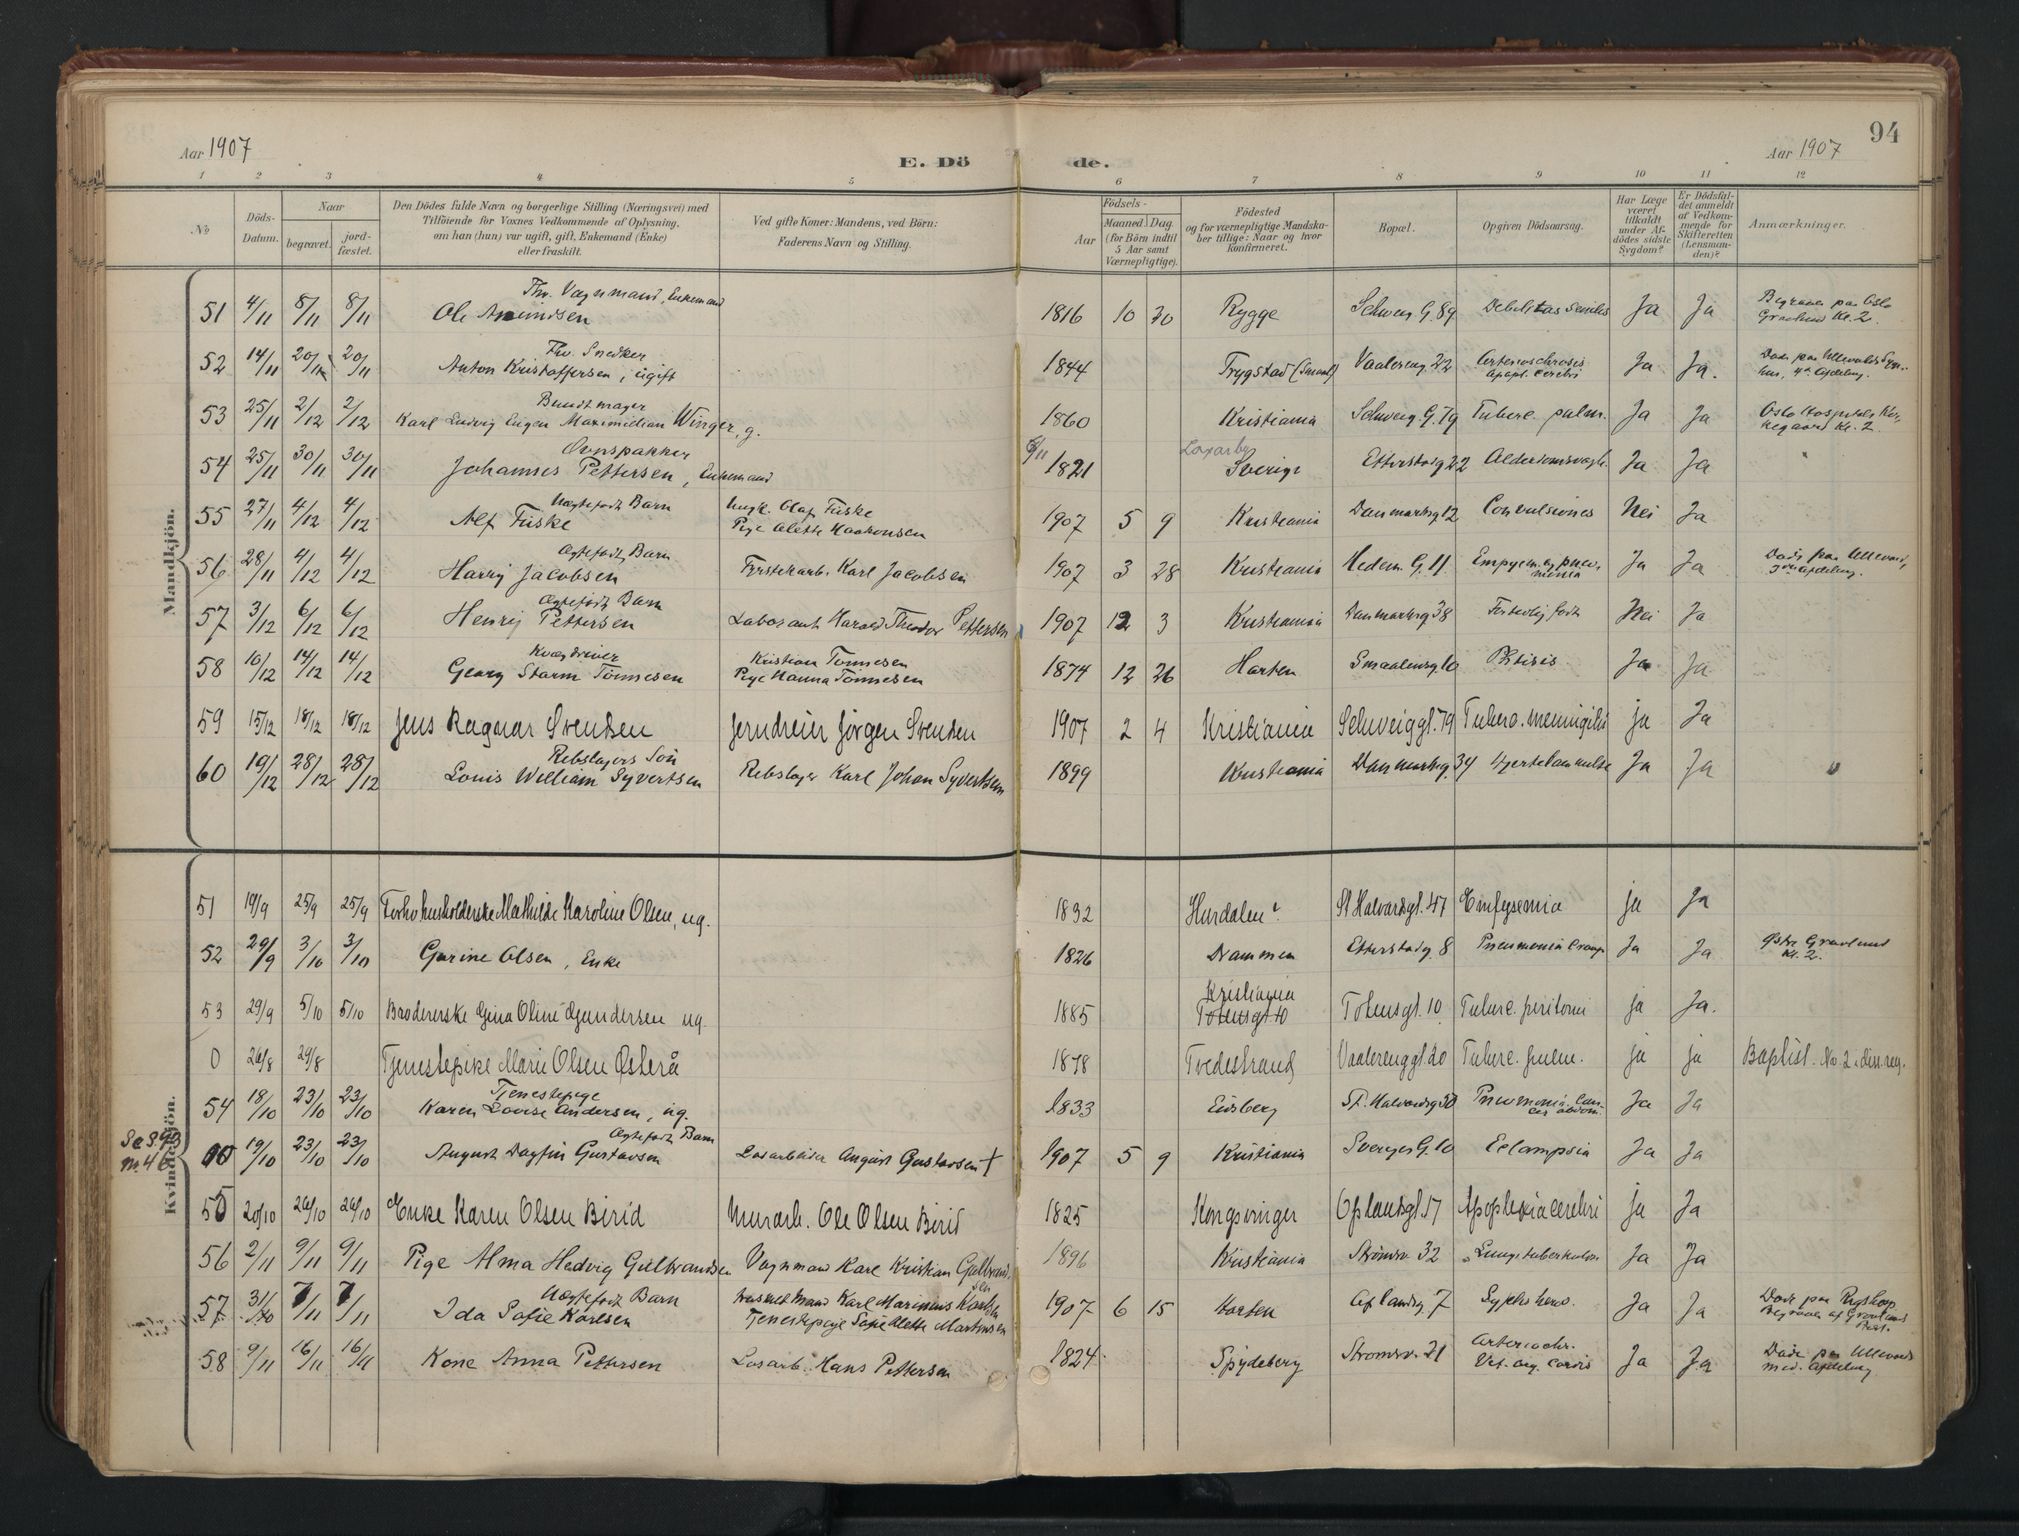 94
Aar 1907
E. Dö de.
Aar 1907
1 2 3 4 5 6 7 8 9 10 11 12
No
Döds-
Datum.
Naar
begravet.
jord-
fæstet.
Den Dödes fulde Navn og borgerlige Stilling (Næringsvei) med
Tilföiende for Voxnes Vedkommende af Oplysning,
om han (hun) var ugift, gift, Enkemand (Enke)
eller fraskilt.
Ved gifte Koner: Mandens, ved Börn:
Faderens Navn og Stilling.
Födsels-
Aar
Maaned Dag
(for Börn indtil
5 Aar samt
Værnepligtige).
Födested
og for værnepligtige Mandska-
ber tillige: Naar og hvor
konfirmeret.
Bopæl.
Opgiven Dödsaarsag.
Har Læge
været
tilkaldt
under Af-
dödes sidste
Sygdom?
Er Dödsfal-
det anmeldt
af Vedkom-
mende for
Skifteretten
(Lensman-
den)?
Anmærkninger.
Mandkjön.
Fhv. Vognmand, Enkemand
51 4/11 8/11 8/11 Ole Amundsen 1816 10 20 Rygge Schweig. G. 89 Debilitas senilis Ja Ja Begraven paa Oslo
Gravlund Kl. 2.
Fhv. Snedker
52 14/11 20/11 20/11 Anton Kristoffersen, ugift 1844 Trygstad (Smaal) Vaalereng. 22 Arterioschrosis
Apopl. cerebri Ja Ja. Döde paa Ullevolds Syge-
hus, 4de Afdeling.
Bundtmager
53 25/11 2/12 2/12 Karl Ludvig Eugen Maximilian Winger, g. 1860 Kristiania Schweig. G. 79 Tuberc. pulm. Ja Ja Oslo Hospitals Kir-
kegaard Kl. 2.
Ovnspakker
54 25/11 30/11 30/11 Johannes Pettersen, Enkemand 1821 Sverige Etterstadg 22 Alderdomssvagh. Ja Ja
Uægtefödt Barn
55 27/11 4/12 4/12 Alf Fuske Ungk. Olaf Fuske
Pige Alette Haakonsen 1907 5 9 Kristiania Danmarksg 12 Convulsiones Nei Ja
Ægtefödt Barn
56 28/11 4/12 4/12 Harry Jacobsen Fyrstikarb. Karl Jacobsen 1907 3 28 Kristiania Hedem. G. 11. Empyem. og pneu-
monia Ja Ja Döde paa Ullevold,
3die Afdeling.
Ægtefödt Barn
57 3/12 6/12 6/12 Henry Pettersen Labosant Harald Theodor Pettersen 1907 12 3 Kristiania Danmarksg 38 For tidlig födt Nei Ja
Kvægdriver
58 10/12 14/12 14/12 Georg Storm Tönnesen Kristian Tönnesen
Pige Hanna Tönnesen 1874 12 26 Horten Smaalensg. 10 Phtisis Ja Ja
59 15/12 18/12 18/12 Jens Ragnar Svendsen Jerndreier Jørgen Svendsen 1907 2 4 Kristiania Schweiggt. 79 Tuberc. meningitis ja Ja
Rebslagers Sön
60 19/12 28/12 28/12 Louis William Syvertsen Rebslager Karl Johan Syvertsen 1899 Kristiania Danmarksg. 34 Hjertelammelse Ja Ja "
Kvindekjön.
51 19/9 25/9 25/9 Forhv husholderske Mathilde Karoline Olsen, ug. 1832 Hurdalen St Halvardsgt. 47 Emfysemia ja Ja
52 29/9 3/10 3/10 Gurine Olsen, Enke 1826 Drammen Etterstadg. 8 Pneumonia Croup Ja Ja Østre Gravlund
Kl. 2.
Kristiania
53 29/9 5/10 5/10 Brodererske Gina Oline Gundersen ug. 1885 Totensgt 10 Totensgt. 10 Tuberc. peritoni ja Ja.
0 26/8 29/8 Tjenestepike Marie Olsen Østerå 1878 Tvedestrand Vaalerenggt 20 Tuberc. pulm. ja ja Baptist. No 2 i diss. reg.
Tjenestepige
54 18/10 23/10 23/10 Karen Lovise Andersen, ug. 1833 Eidsberg St. Halvardsg 30 Pneumonia Can-
cer abdom. Ja Ja
Se S. 93
m. 46
Ægtefödt Barn
00 19/10 23/10 23/10 August Dagfin Gustavsen Losarbeider August Gustavsen + 1907 5 9 Kristiania Sveriges G. 10 Eclampsia Ja Ja
55 20/10 26/10 26/10 Enke Karen Olsen Birid Murarb. Ole Olsen Birid 1825 Kongsvinger Oplandsgt. 17 Apoplexia cerebri ja Ja
56 2/11 9/11 9/11 Pige Alma Hedvig Gulbrandsen Vognmand Karl Kristian Gulbrand-
sen 1896 Kristiania Strömsv. 32 Lungetuberkulose Ja Ja
Uægtefödt Barn
57 31/10 7/11 7/11 Ida Sofie Karlsen Karl Marinius Karlsen
Tjenestepige Sofie Alette Martinsen 1907 6 15 Horten Oplandsg. 7 Syphs hered. Ja Ja Döde paa Rigshosp
Begraven af Grönlands
Prest.
58 9/11 16/11 16/11 Kone Anna Pettersen Losarb. Hans Pettersen 1824 Spydeberg Strömsv. 21 Arterioschr.
Vit. org. cordis Ja Ja Döde paa Ullevold
med. Afdeling